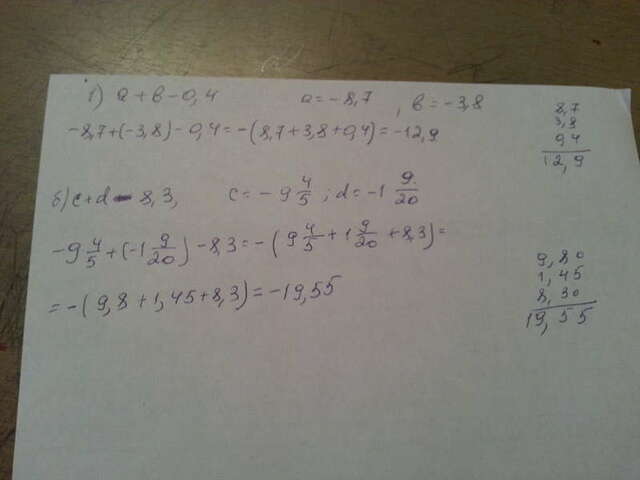 1) a + b - 0,4 a = -8,7, b = -3,8
-8,7 + (-3,8) - 0,4 = -(8,7 + 3,8 + 0,4) = -12,9
8,7
3,8
0,4
12,9
б) c + d - 8,3, c = -9 4/5; d = -1 9/20
-9 4/5 + (-1 9/20) - 8,3 = -(9 4/5 + 1 9/20 + 8,3) =
= -(9,8 + 1,45 + 8,3) = -19,55
9,80
1,45
8,30
19,55